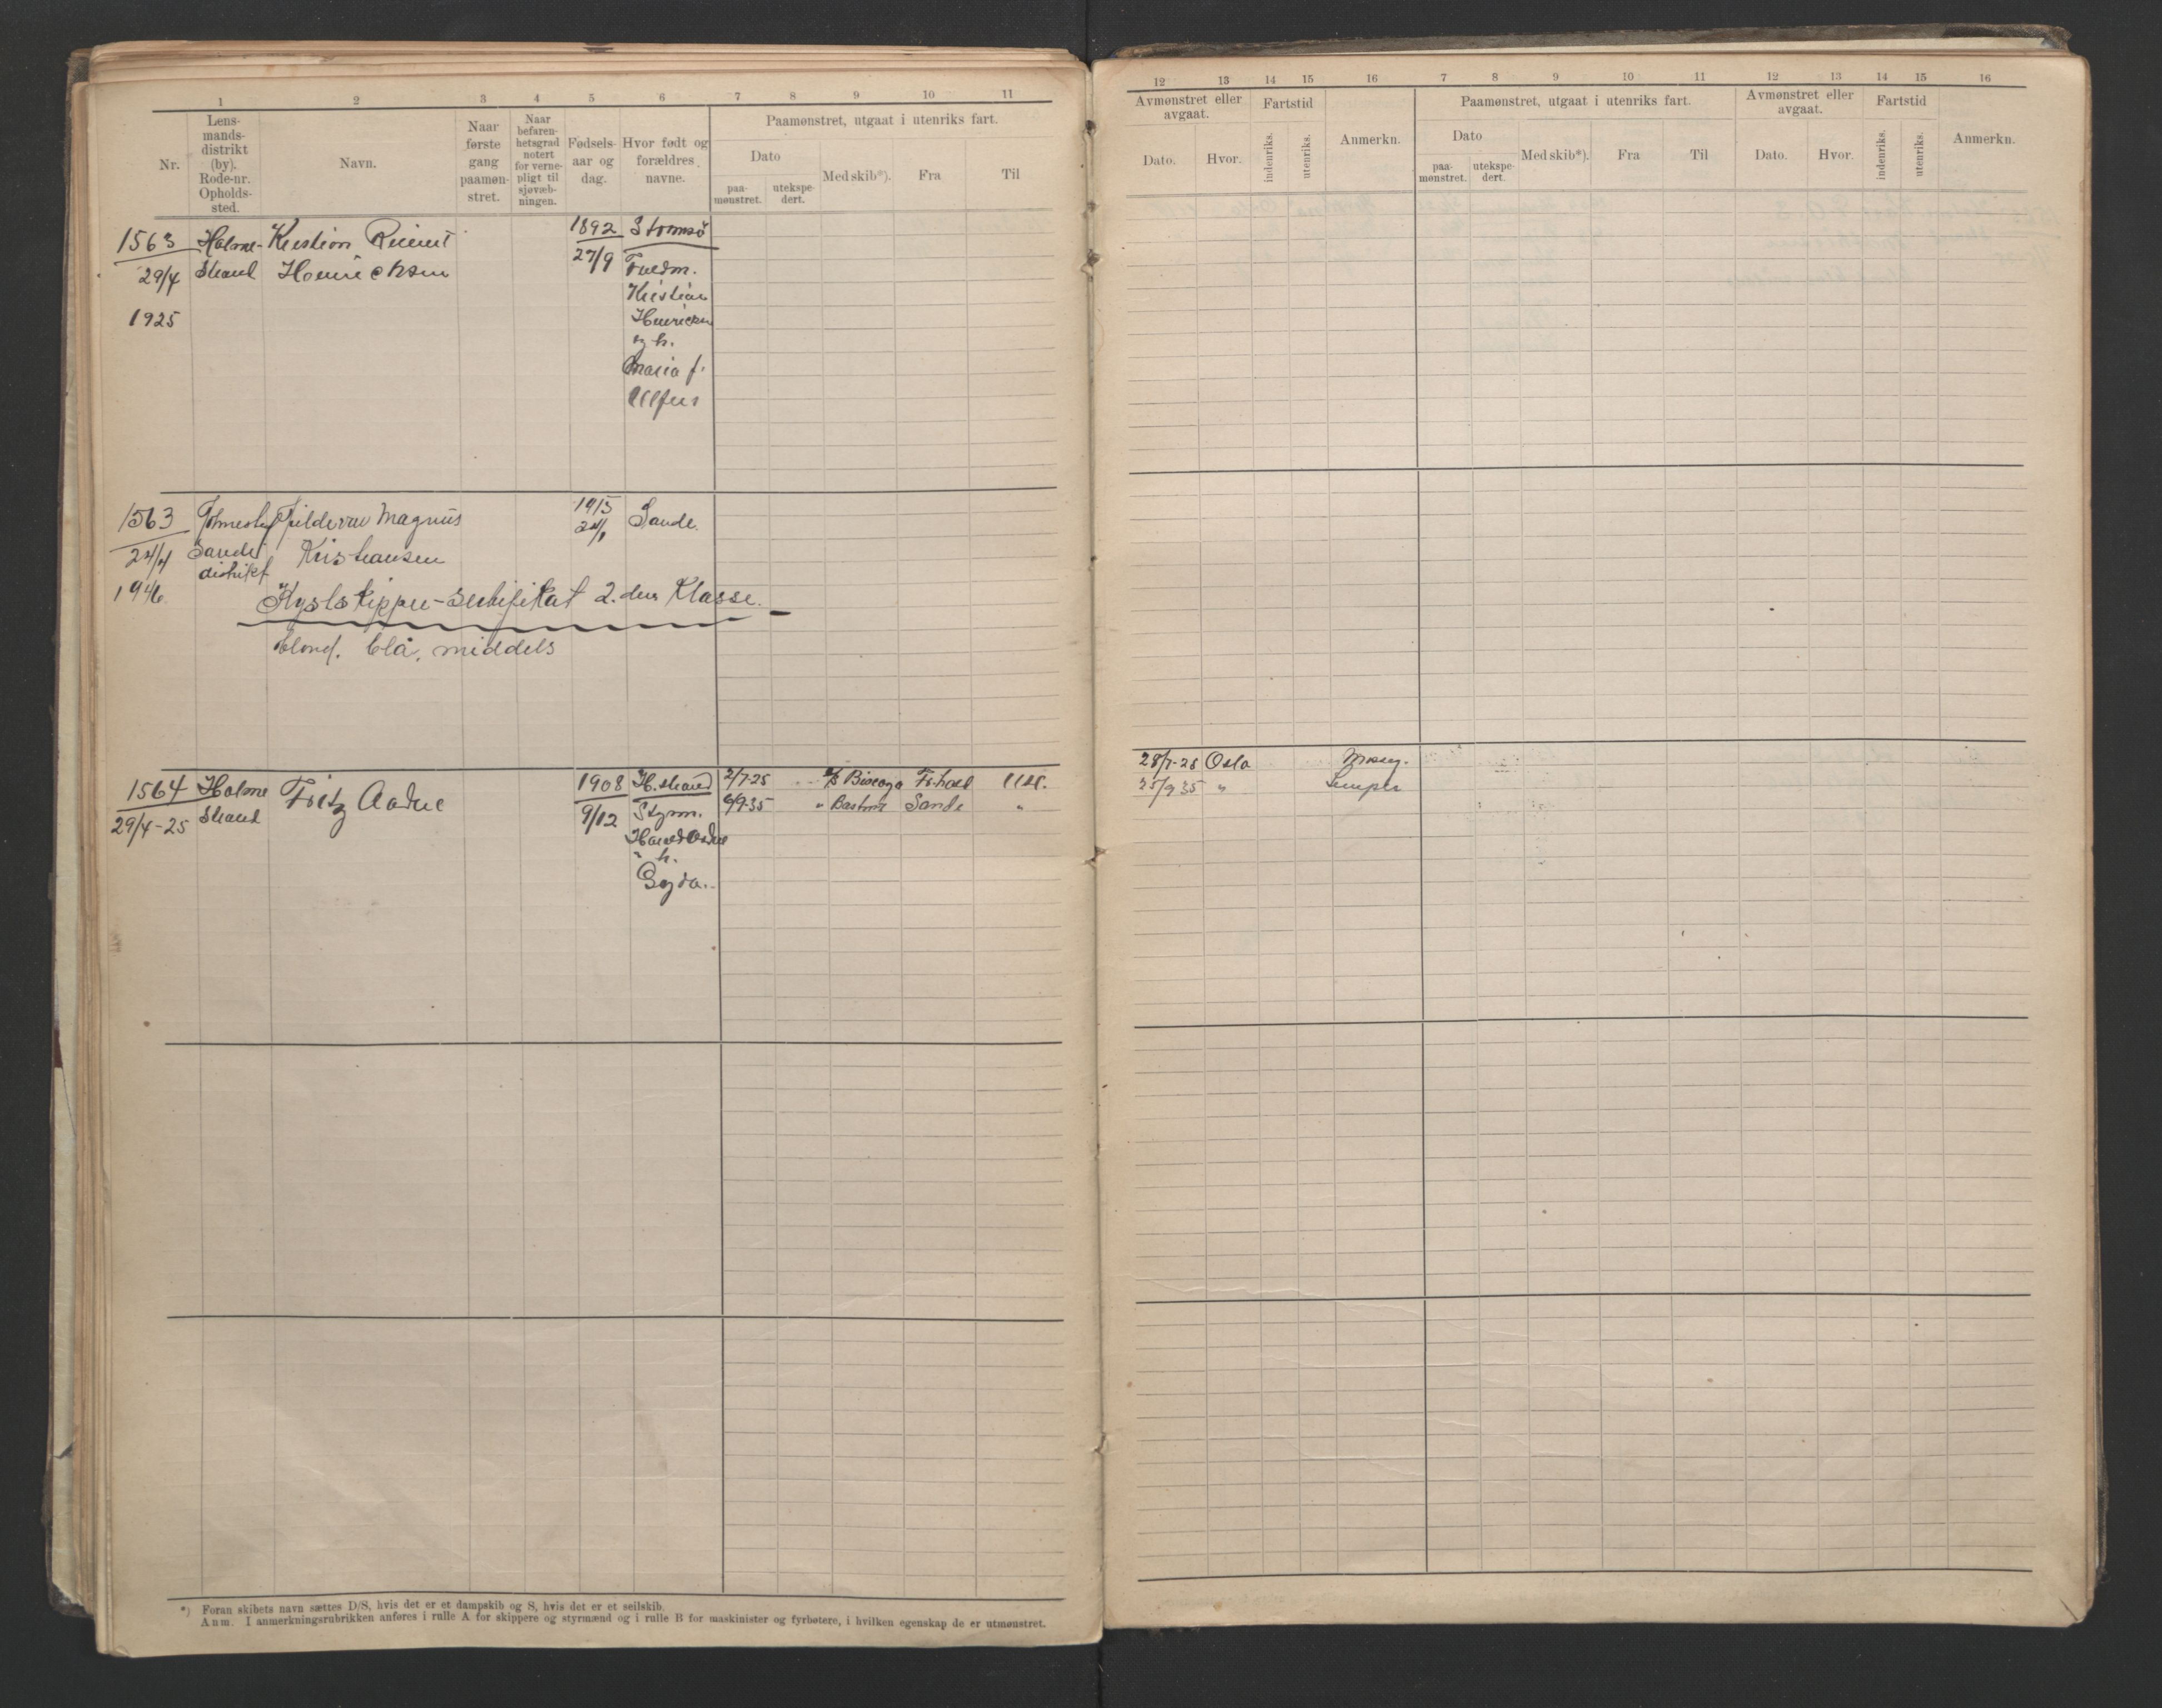 1 2 3 4 5 6 7 8 9 10 11
Nr.
Lens-
mands-
distrikt
(by).
Rode-nr.
Opholds-
sted.
Navn.
Naar
første
gang
paamøn-
stret.
Naar
befaren-
hetsgrad
notert
for verne-
pligt til
sjøvæb-
ningen.
Fødsels-
aar og
dag.
Hvor født og
forældres
navne.
Paamønstret, utgaat i utenriks fart.
Dato
paa-
mønstret.
utekspe-
dert.
Med skib*).
Fra
Til
1563 Holme- Kristian
1892 Strømsö
29/4 strand Henrichsen
27/9
Kristian
1925
og h.
Maria f.
1563
1915
Sande.
24/4 Sande Kristiansen
distrikt
1946.
Kystskipper-sertifikat 2. den Klasse.
blond. blå, middels
1564 Holme Fritz
1908 H.strand 2/7-25
29/4-25 strand
9/12 Styrm.
6/9-35 " Sande "
h.
*) Foran skibets navn sættes D/S, hvis det er et dampskib og S, hvis det er et seilskib.
Anm. I anmerkningsrubrikken anføres i rulle A for skippere og styrmænd og i rulle B for maskinister og fyrbøtere, i hvilken egenskap de er utmønstret.
12 13 14 15 16 7 8 9 10 11 12 13 14 15 16
Avmønstret eller
avgaat.
Dato.
Hvor.
Fartstid
indenriks.
utenriks.
Anmerkn.
Paamønstret, utgaat i utenriks fart.
Dato
paa-
mønstret.
utekspe-
dert.
Med skib*).
Fra
Til
Avmønstret eller
avgaat.
Dato.
Hvor.
Fartstid
indenriks.
utenriks.
Anmerkn.
28/7-25 Oslo
25/9 35 "